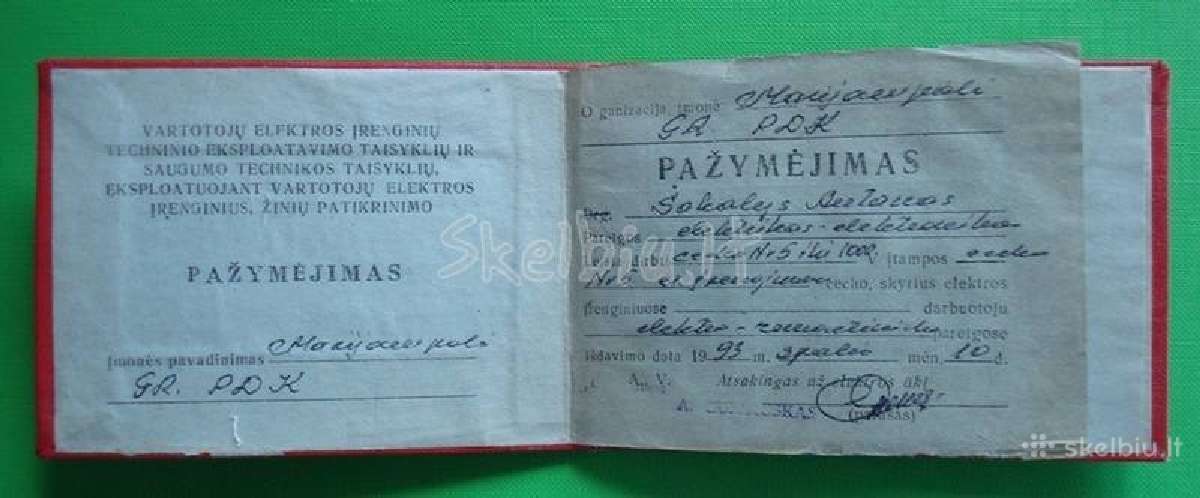 VARTOTOJŲ ELEKTROS ĮRENGINIŲ
TECHNINIO EKSPLOATAVIMO TAISYKLIŲ IR
SAUGUMO TECHNIKOS TAISYKLIŲ,
EKSPLOATUOJANT VARTOTOJŲ ELEKTROS
ĮRENGINIUS, ŽINIŲ PATIKRINIMO
PAŽYMĖJIMAS
Įmonės pavadinimas Marijampolė
GR. PDK
O ganizacija įmonė Marijampolė
GR. PDK
PAŽYMĖJIMAS
Drg. Šakalys Antanas
Pareigos
Leista dirbti Nr 5 iki 1000 įtampos
Nr 5 cecho, skyrius elektros
įrenginiuose darbuotojų
elektro- pareigose
Išdavimo data 1993 m. spalio mėn. 10 d.
A. V. Atsakingas už elektros ūkį
(parašas)
Skelbiu.lt
skelbiu.lt